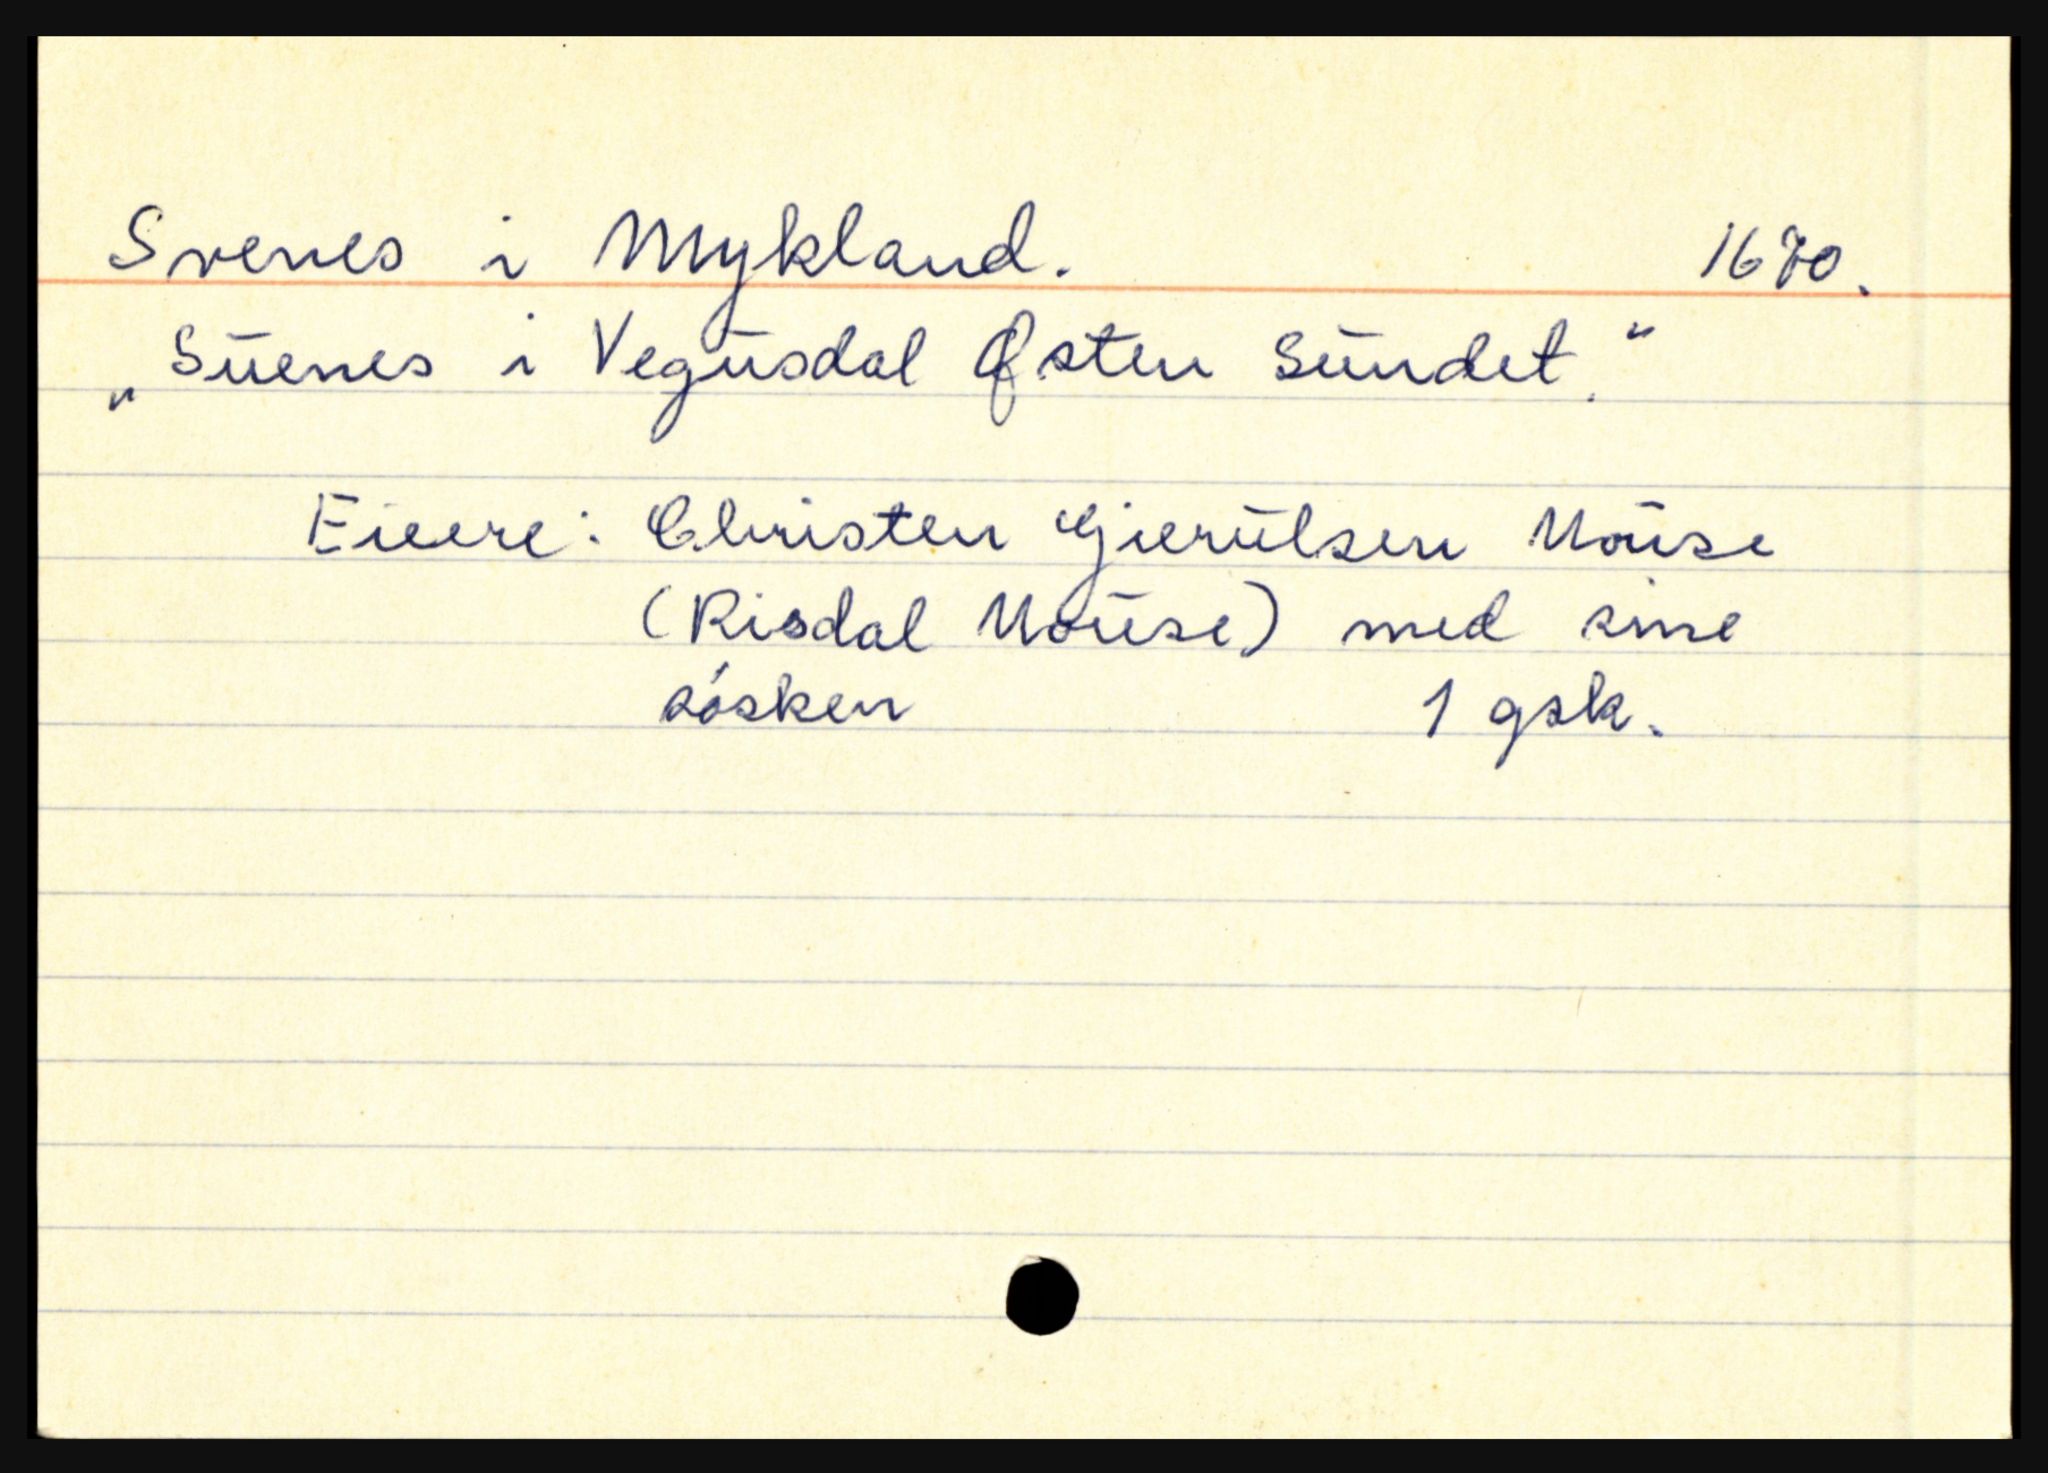 Svenes i Mykland. 1670.
„Süenes i Vegüsdal Østen Sündet.“
Eiere: Christen Gierülsen Moüse
(Risdal Moüse) med sine
sósken 1 gsk.